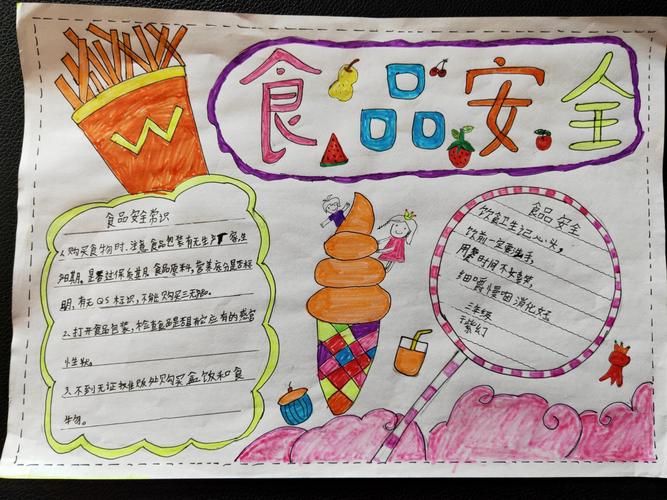 食品安全
食品安全常识
1.购买食物时,注意食品包装有无生产厂家,生
产日期。是否过保质期 食品原料,营养成分是否标
明,有无QS标识,不能购买三无产品。
2.打开食品包装,检查食品是否具有它应有的感官
性状。
3.不到无证摊贩处购买盒饭和食
物。
食品安全
饮食卫生记心头,
饭前一定要洗手,
用餐时间不
细嚼慢咽消化
三年级